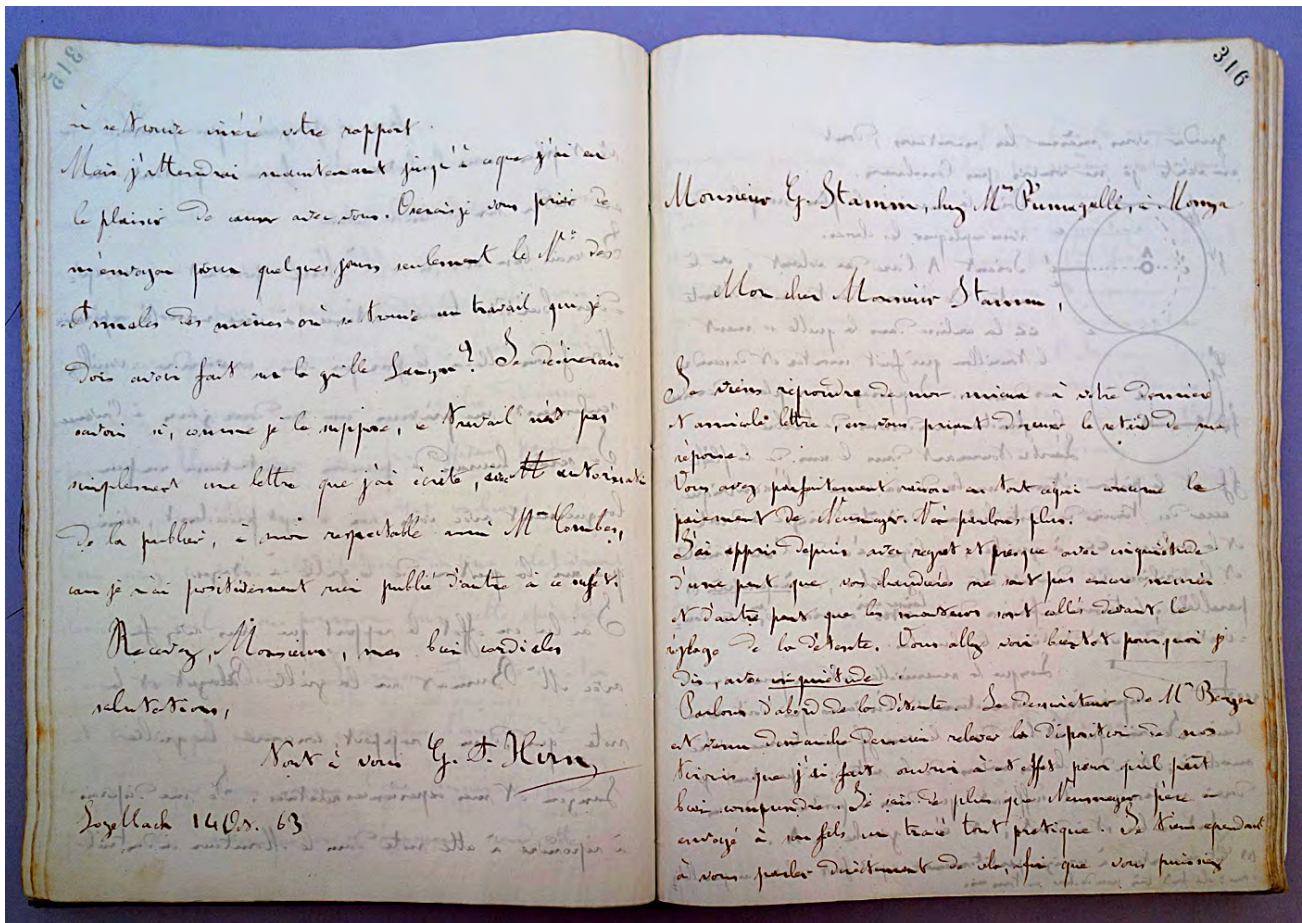 315
où se trouve inséré votre rapport.
Mais j'attendrai maintenant jusqu'à ce que j'ai eu
le plaisir de causer avec vous. Oserais-je vous prier de
m'envoyer pour quelques jours seulement le N.º des
Annales des mines où se trouve un travail que je
dois avoir fait sur la grille Langen? Je désirerais
savoir si, comme je le suppose, ce travail n'est pas
simplement une lettre que j'ai écrite, avec autorisation
de la publier, à mon respectable ami Mr Combes,
car je n'ai positivement rien publié d'autre à ce sujet.
Recevez, Monsieur, mes bien cordiales
salutations,
Tout à vous G. A. Hirn
Logelbach 14 Oct. 63
316
Monsieur G. Stamm, chez Mr Fumagalli, à Monza
Mon cher Monsieur Stamm,
Je viens répondre de mon mieux à votre dernière
et amicale lettre, en vous priant d'excuser le retard de ma
réponse.
Vous avez parfaitement raison en tout ce qui concerne le
paiement de Neumeyer. N'en parlons plus.
J'ai appris depuis avec regret et presque avec inquiétude
d'une part que vos chaudières ne sont pas encore murées
et d'autre part que les monteurs sont allés devant le
réglage de la détente. Vous allez voir bientôt pourquoi je
dis, avec inquiétude.
Parlons d'abord de la détente. Le dessinateur de Mr Berger
est venu dimanche dernier relever la disposition de nos
tiroirs que j'ai fait ouvrir à cet effet pour qu'il pût
bien comprendre. Je sais de plus que Neumeyer père a
envoyé à son fils un tracé tout pratique. Je tiens cependant
à vous parler directement de cela, afin que vous puissiez